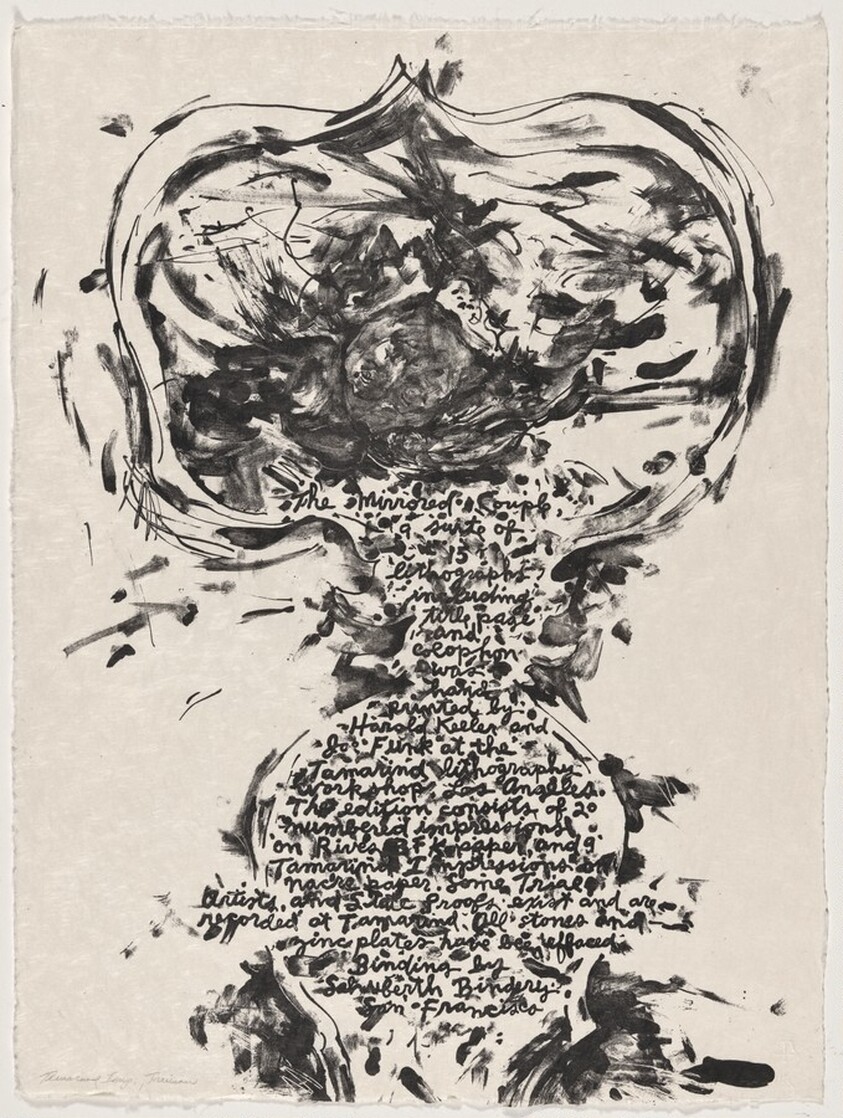 The Mirrored Couple,
a suite of
15
lithographs
including
title page
and
colophon
was
hand
printed by
Harold Keeler and
Joe Funk at the
Tamarind lithography
workshop, Los Angeles.
The edition consists of 20
numbered impressions
on Rives BFK paper, and 9
Tamarind Impressions on
nacre paper. Some Trial,
Artists, and State Proofs exist and are
recorded at Tamarind. All stones and
zinc plates have been effaced.
Binding by
Schuberth Bindery
San Francisco
Tamarind Imp.